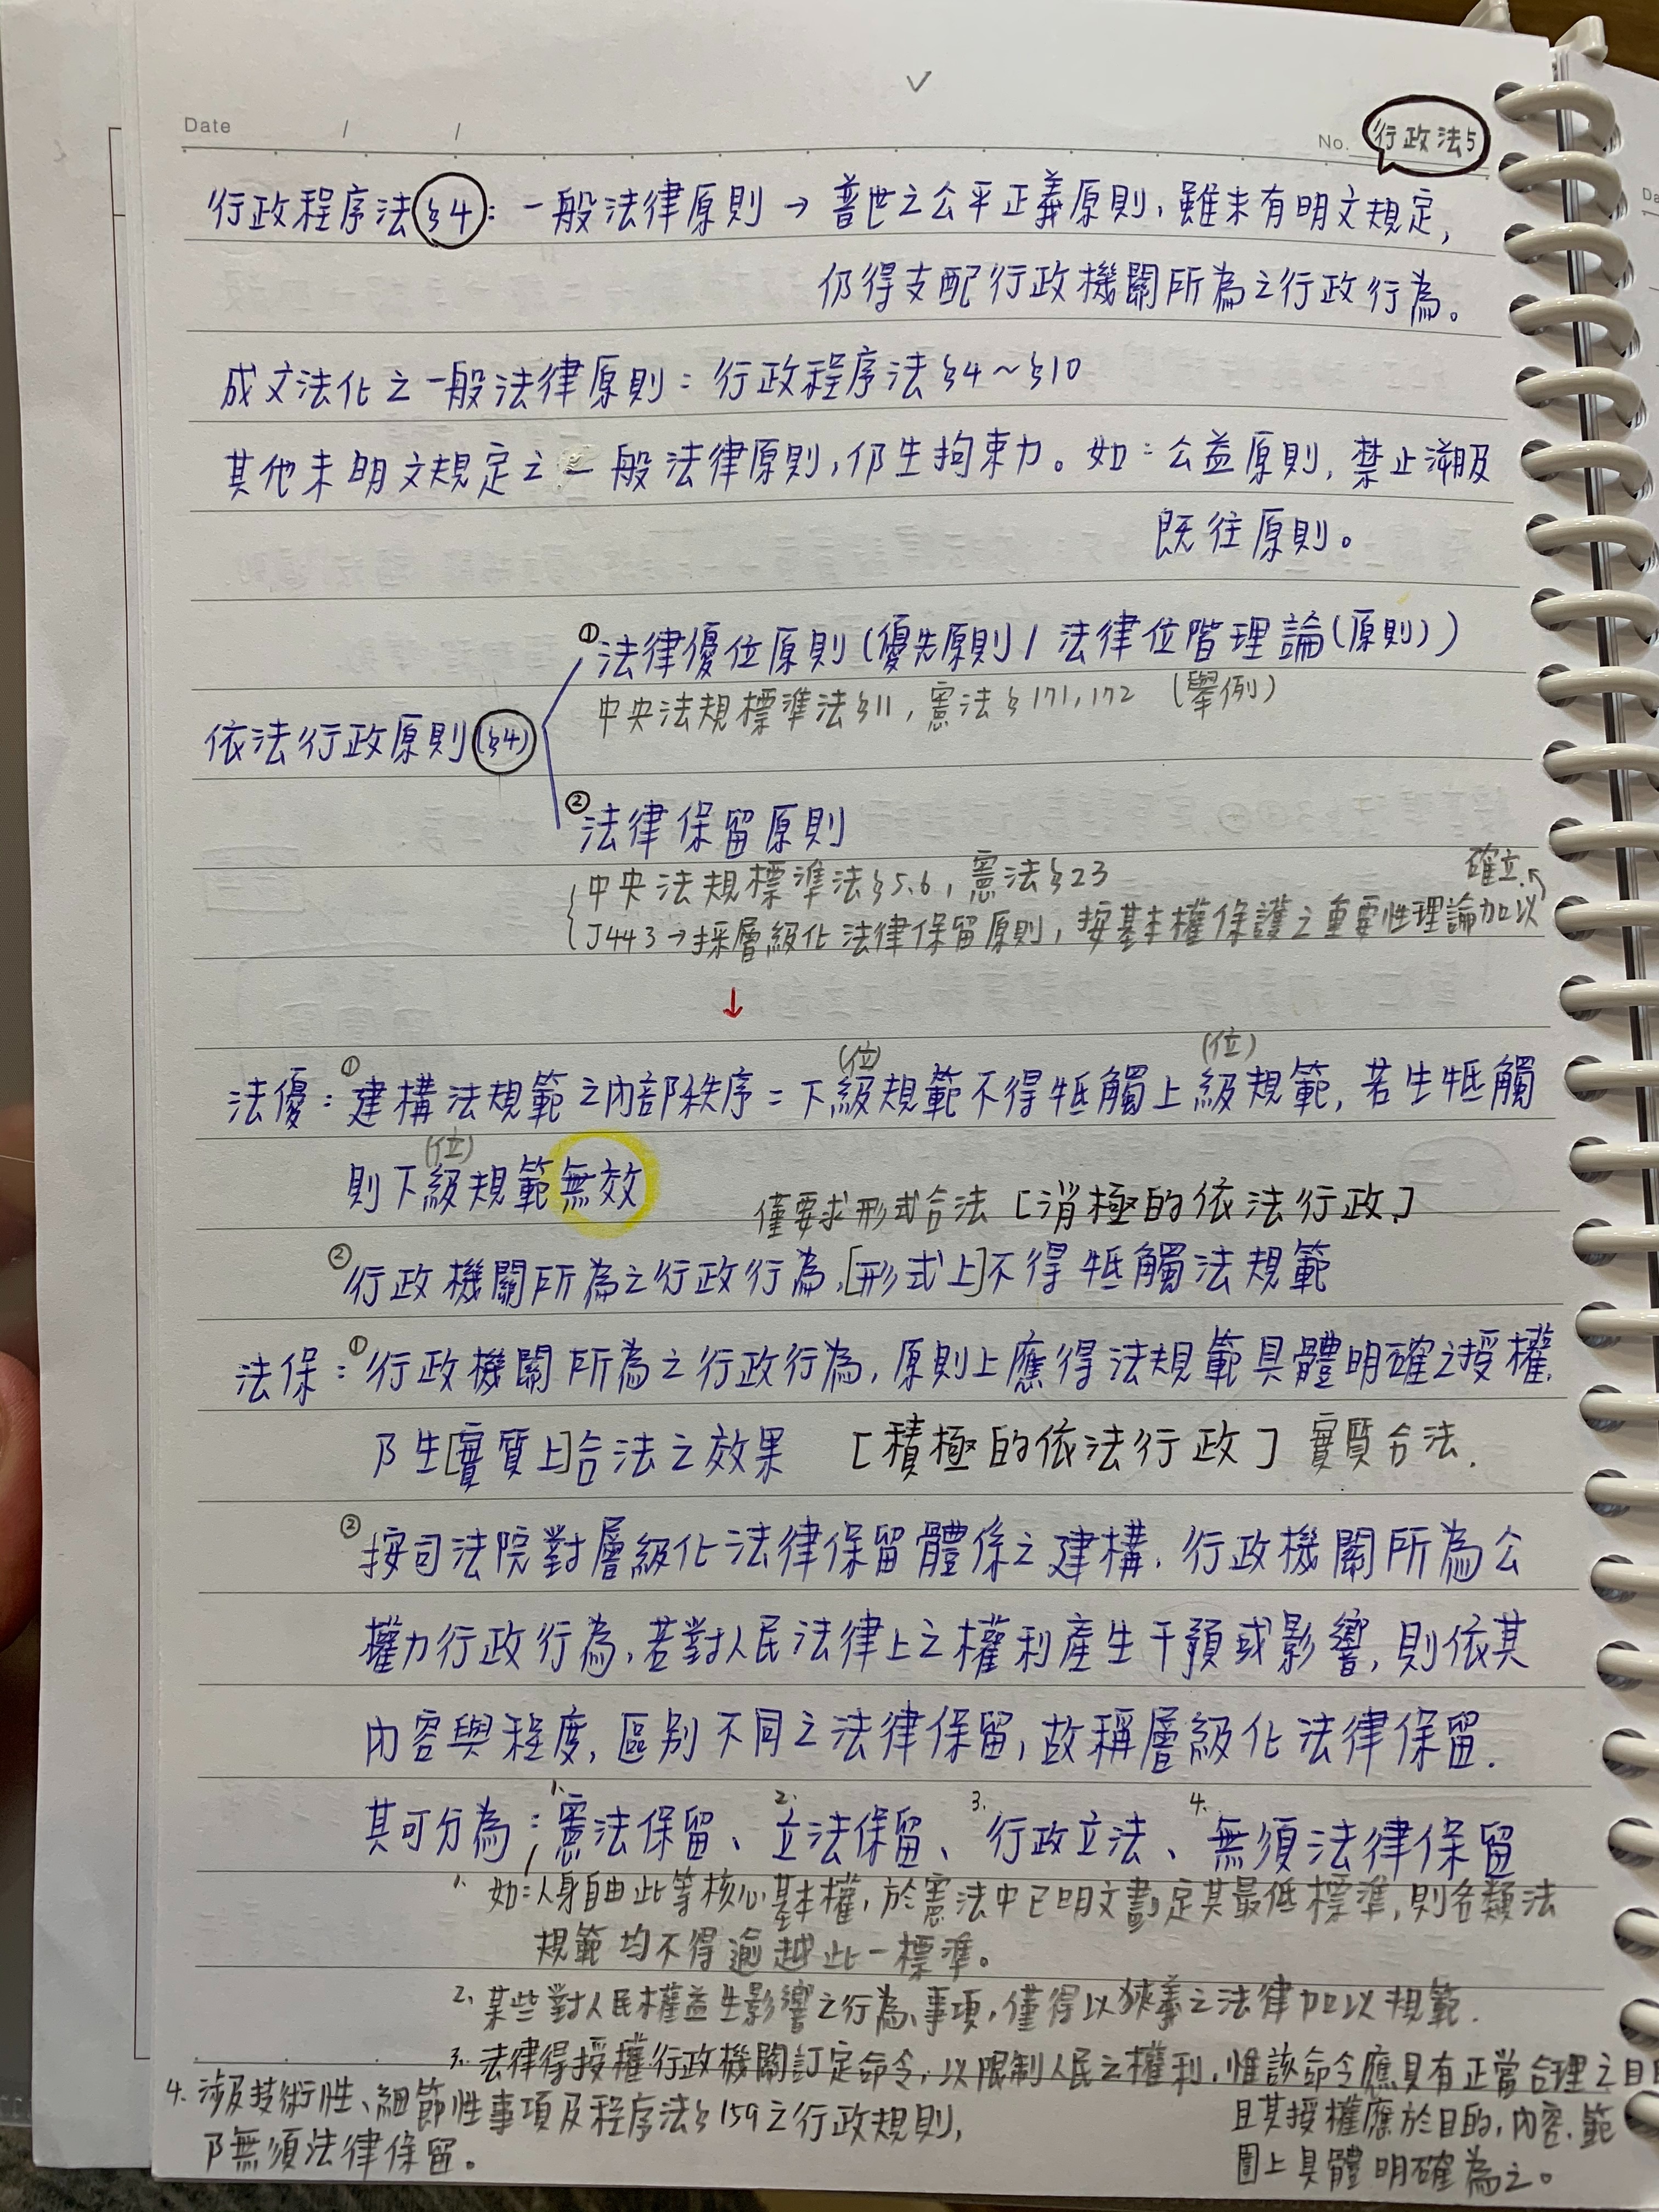 Date / /
No. 行政法5
行政程序法§4：一般法律原則 → 普世之公平正義原則，雖未有明文規定，
仍得支配行政機關所為之行政行為。
成文法化之一般法律原則：行政程序法§4～§10
其他未明文規定之一般法律原則，仍生拘束力。如：公益原則，禁止溯及
既往原則。
①法律優位原則(優先原則/法律位階理論(原則))
中央法規標準法§11，憲法§171,172 (舉例)
依法行政原則(§4)
②法律保留原則
中央法規標準法§5.6，憲法§23
確立.
J443→採層級化法律保留原則，按基本權保護之重要性理論加以
↓
(位) (位)
法優：①建構法規範之內部秩序=下級規範不得牴觸上級規範，若生牴觸
(位)
則下級規範無效
僅要求形式合法 [消極的依法行政]
②行政機關所為之行政行為，[形式上]不得牴觸法規範
法保：①行政機關所為之行政行為，原則上應得法規範具體明確之授權，
乃生[實質上]合法之效果 [積極的依法行政] 實質合法.
②按司法院對層級化法律保留體係之建構，行政機關所為公
權力行政行為，若對人民法律上之權利產生干預或影響，則依其
內容與程度，區別不同之法律保留，故稱層級化法律保留.
其可分為：1.憲法保留、2.立法保留、3.行政立法、4.無須法律保留
1. 如:人身自由此等核心基本權，於憲法中已明文劃定其最低標準，則各類法
規範均不得逾越此一標準。
2. 某些對人民權益生影響之行為、事項，僅得以狹義之法律加以規範.
3. 法律得授權行政機關訂定命令，以限制人民之權利，惟該命令應具有正當合理之目
且其授權應於目的，內容，範
圍上具體明確為之。
4. 涉及技術性、細節性事項及程序法§159之行政規則，
乃無須法律保留。